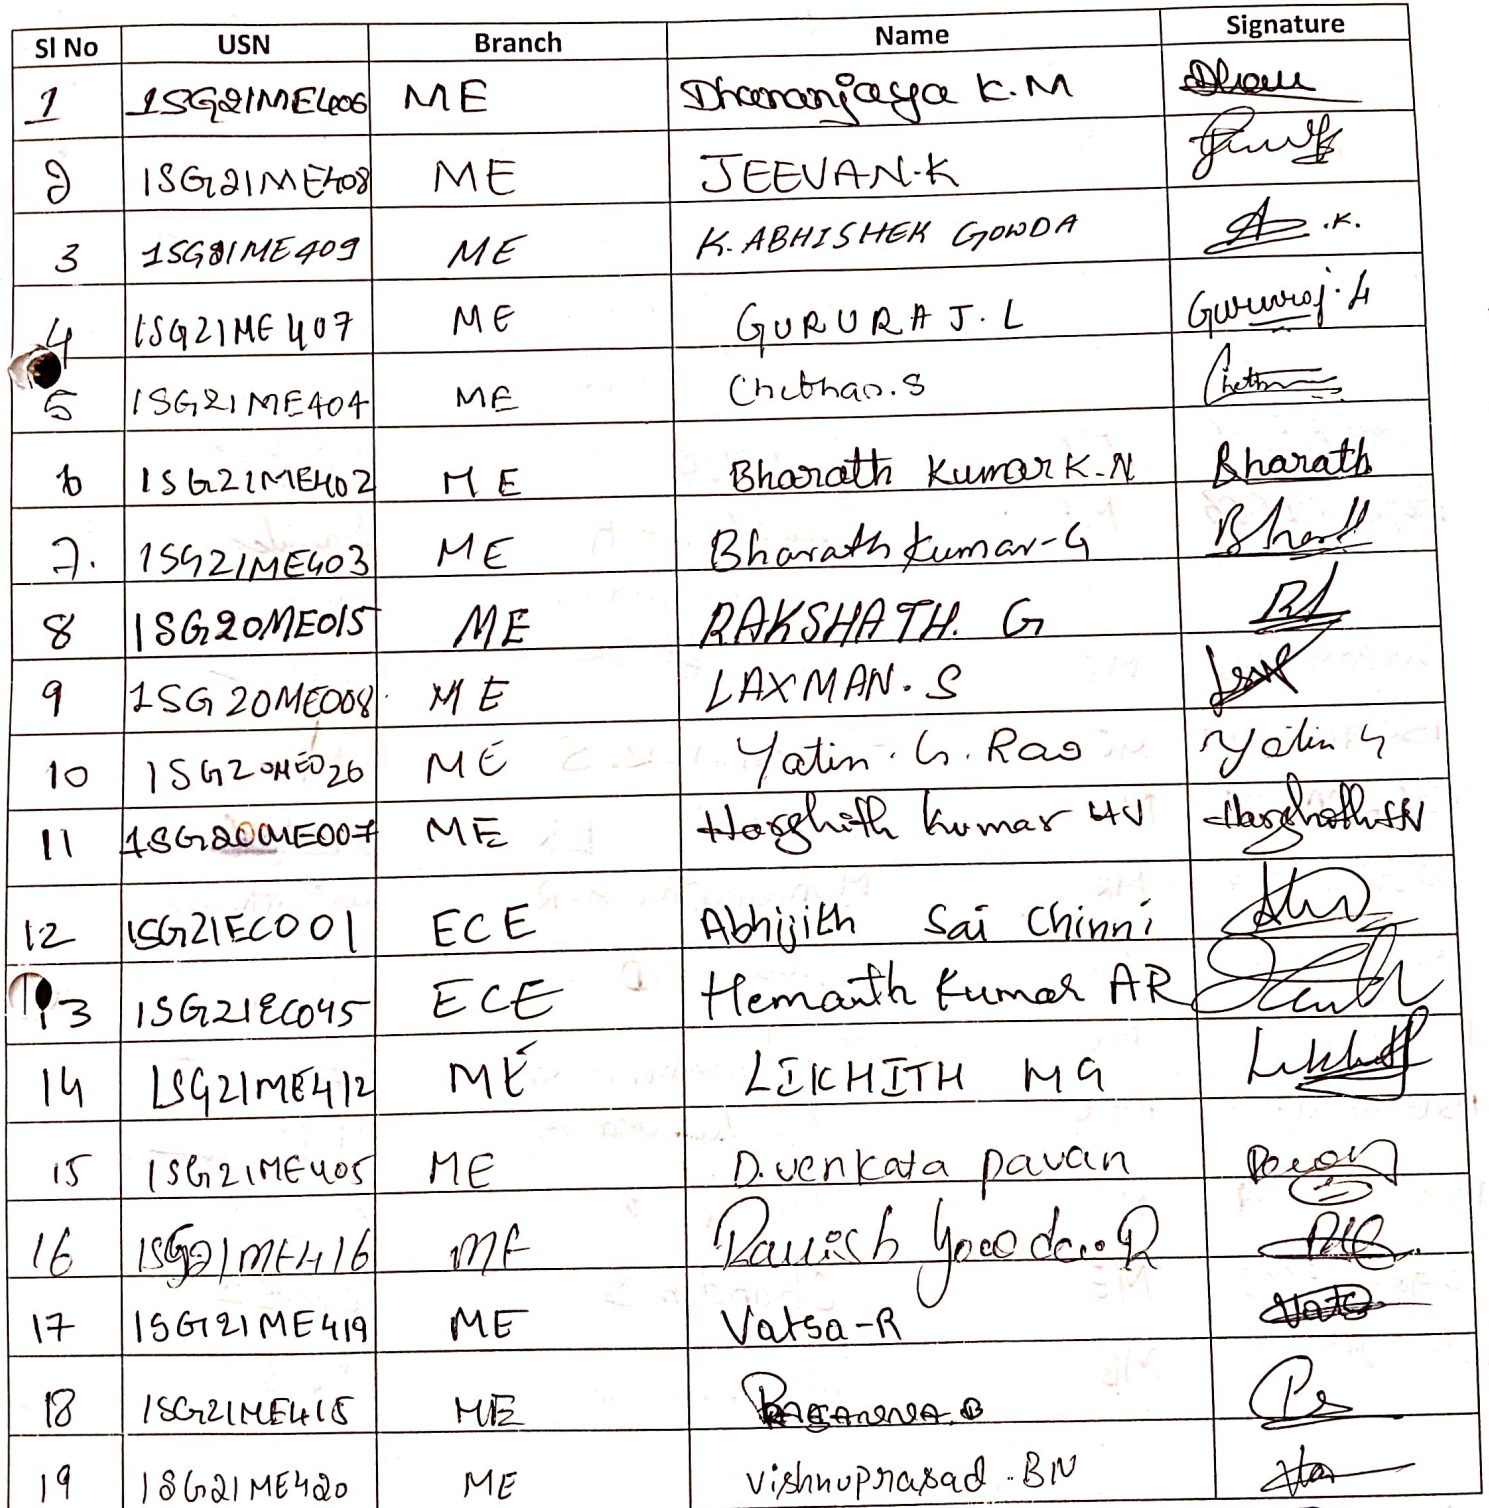 Sl No USN Branch Name Signature
1 1SG21ME406 ME Dhananjaya K.M
2 1SG21ME408 ME JEEVAN.K
3 1SG21ME409 ME K. ABHISHEK GOWDA A .K.
4 1SG21ME407 ME GURURAJ.L Gururaj.L
5 1SG21ME404 ME Chethan.S Chethan
6 1SG21ME402 ME Bharath Kumar K.N Bharath
7. 1SG21ME403 ME Bharath Kumar-G Bharath
8 1SG20ME015 ME RAKSHATH. G
9 1SG20ME008 ME LAXMAN. S
10 1SG20ME026 ME Yatin. G. Rao Yatin G
11 1SG20ME007 ME Harshith Kumar HV
12 1SG21EC001 ECE Abhijith Sai Chinni
13 1SG21EC045 ECE Hemanth Kumar AR
14 1SG21ME412 ME LIKHITH M G Likhith
15 1SG21ME405 ME D. venkata pavan
16 1SG21ME416 ME R
17 1SG21ME419 ME Vatsa-R Vatsa
18 1SG21ME415 ME
19 1SG21ME420 ME Vishnuprasad.BN